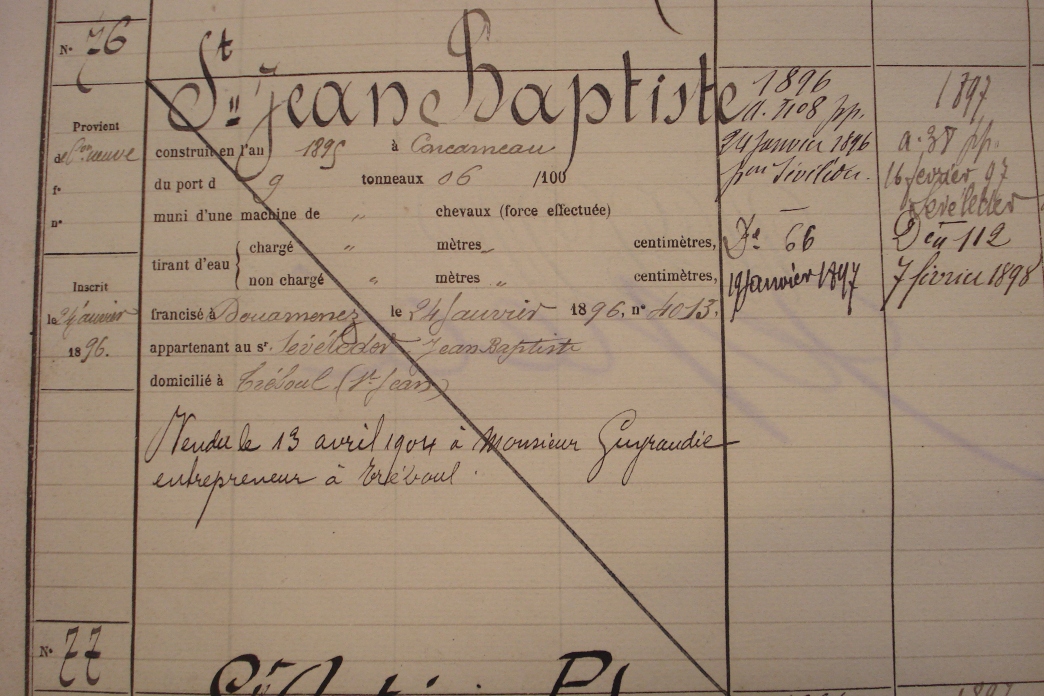 N° 76
St Jean Baptiste
Provient
de Con neuve
f°
n°
Inscrit
le 24 Janvier
1896.
construit en l'an 1895 à Concarneau
du port d 9 tonneaux 06 /100
muni d'une machine de " chevaux (force effectuée)
tirant d'eau { chargé " mètres " centimètres,
non chargé " mètres " centimètres,
francisé à Douarnenez le 24 Janvier 1896, n° 4013.
appartenant au sr. Levéleder Jean Baptiste
domicilié à Tréboul (St Jean)
Vendu le 13 avril 1904 à Monsieur Guyraudie
entrepreneur à Tréboul.
1896
a. n°08 pp.
24 Janvier 1896
par
66
19 Janvier 1897
1897
a. 38 pp.
16 fevrier 97
Leveleder
112
7 février 1898
N° 77
St